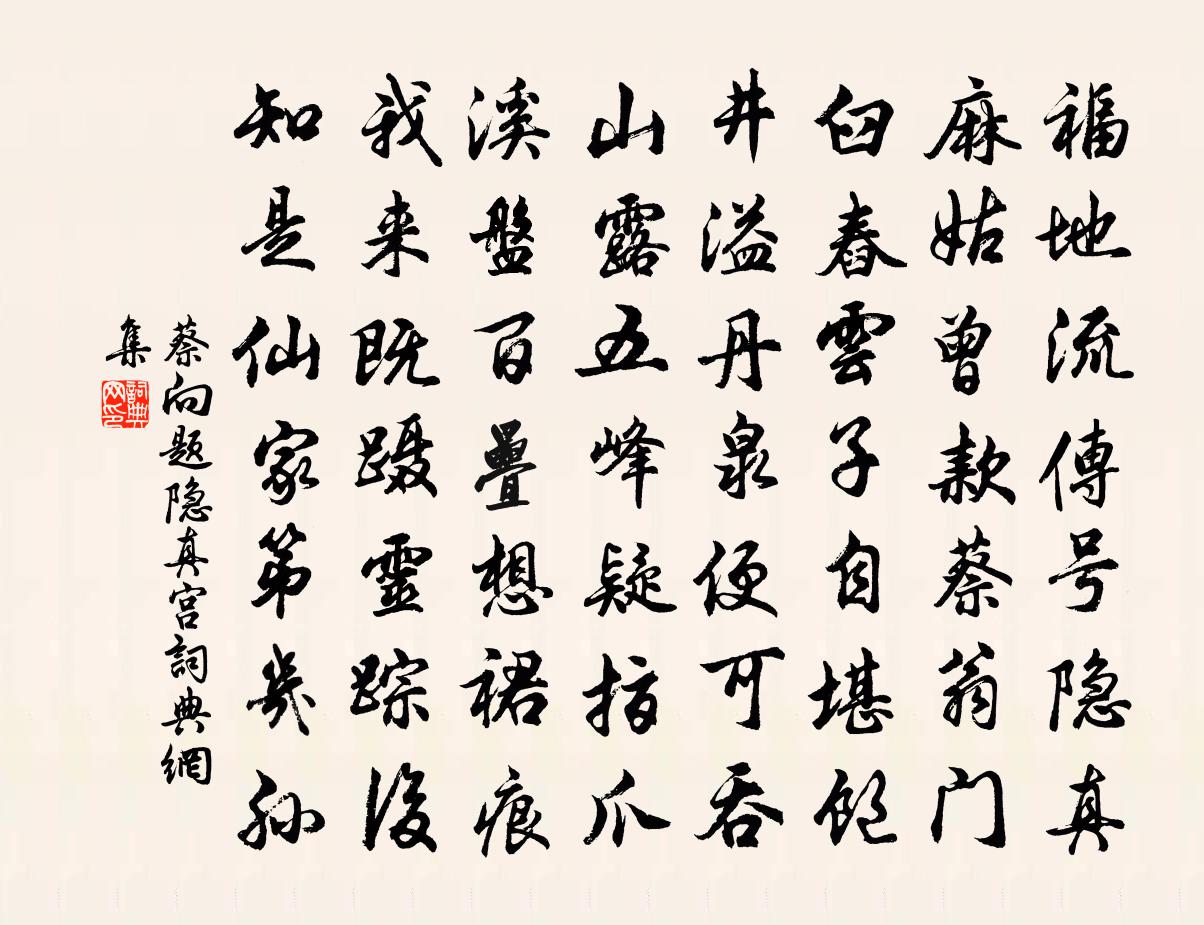 福地流傳号隐真
麻姑曾款蔡翁门
臼舂雲子自堪飽
井溢丹泉便可吞
山露五峰疑指爪
溪盤百疊想裙痕
我来既蹑靈踪後
知是仙家第幾孙
蔡向题隐真宫詞典網
集
詞典网印